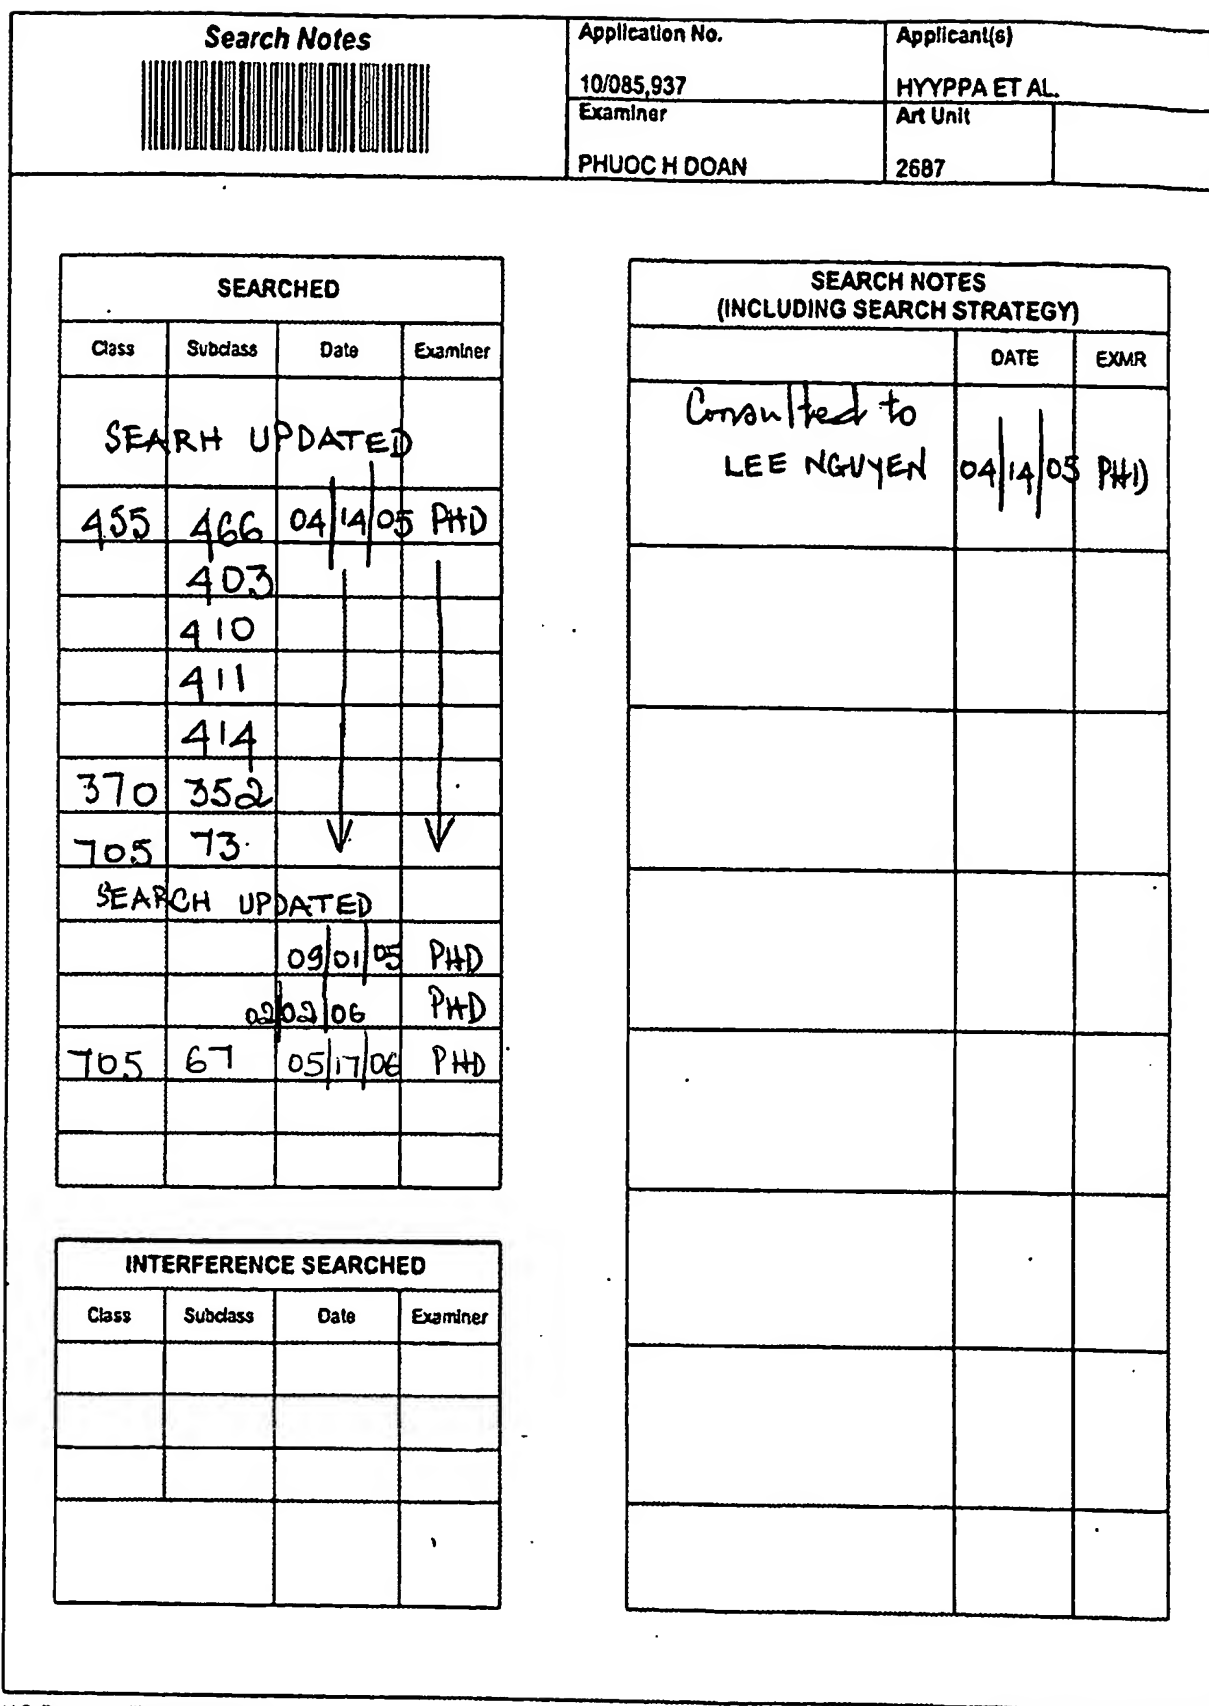 Search Notes
Application No.
10/085,937
Applicant(s)
HYYPPA ET AL.
Examiner
PHUOC H DOAN
Art Unit
2687
SEARCHED
Class Subclass Date Examiner
SEARH UPDATED
455 466 04/14/05 PHD
403
410
411
414
370 352
705 73
SEARCH UPDATED
09/01/05 PHD
02/02/06 PHD
705 67 05/17/06 PHD
INTERFERENCE SEARCHED
Class Subclass Date Examiner
SEARCH NOTES
(INCLUDING SEARCH STRATEGY)
DATE EXMR
Consulted to
LEE NGUYEN 04/14/05 PHD